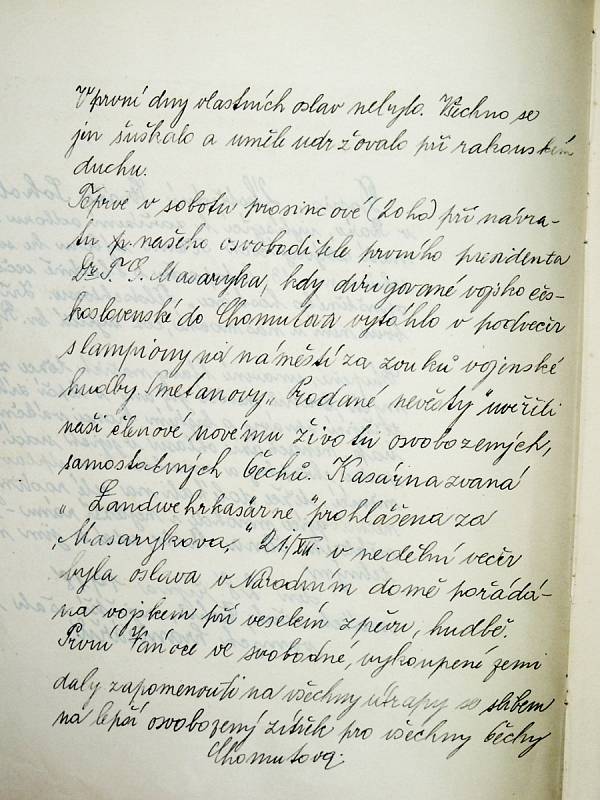 V první dny vlastních oslav nebylo. Všechno se
jen šuškalo a uměle udržovalo při rakouském
duchu.
Teprve v sobotu prosincové (20ho) při návra-
tu p. našeho osvoboditele prvního presidenta
Dr. T. G. Masaryka, kdy dirigované vojsko čes-
koslovenské do Chomutova vytáhlo v podvečír
s lampiony na náměstí za zvuků vojenské
hudby Smetanovy „Prodané nevěsty" uvěřili
naši členové novému životu osvobozených,
samostatných Čechů. Kasárna zvaná
„Landwehrkasárne" prohlášena za
„Masarykova." 21/XII. v nedělní večír
byla oslava v Národním domě pořádá-
na vojskem při veselém zpěvu, hudbě.
První Vánoce ve svobodné, vykoupené zemi
daly zapomenouti na všechny útrapy se slibem
na lepší osvobozený zítřek pro všechny Čechy
Chomutova.